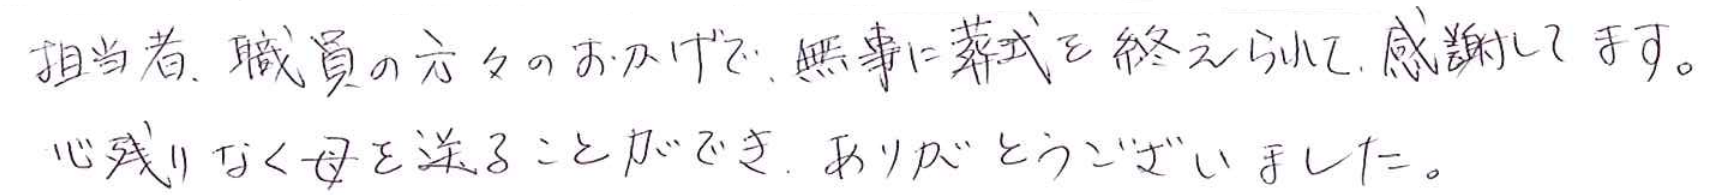 担当者、職員の方々のおかげで、無事に葬式を終えられて、感謝してます。
心残りなく母を送ることができ、ありがとうございました。